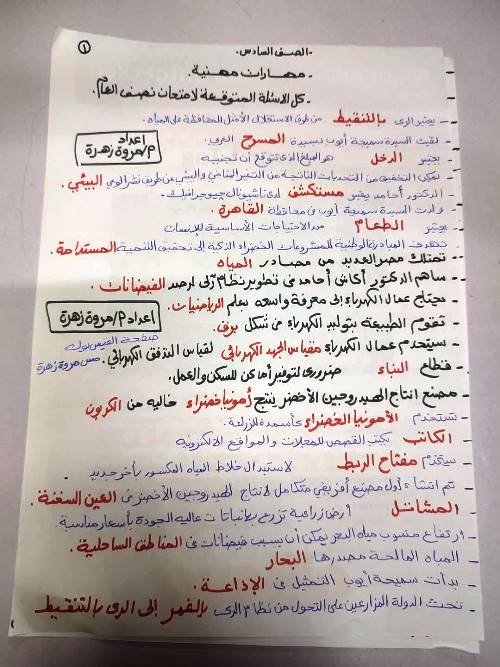 ١
- الصف السادس.
- مهارات مهنية.
- كل الاسئلة المتوقعة لامتحان نصف العام.
- يعتبر الرى بالتنقيط من طرق الاستغلال الأمثل للمحافظة على المياه.
- لقبت السيدة سميحة أيوب لسيدة المسرح العربى.
اعداد م/مروة زهرة
- يعتبر الدخل هو المبلغ الذى تتوقع أن تجنيه
- يمكن التخفيف من التحديات الناتجة من التغير المناخى والبيئي عن طريق نشر الوعي البيئي.
- الدكتور أحامد يعتبر مستكشف لدى ناشيونال جيوجرافيك.
- ولدت السيدة سميحة أيوب فى محافظة القاهرة.
- يعتبر الطعام من الاحتياجات الأساسية للإنسان
- تهدف المبادرة الوطنية للمشروعات الخضراء الذكية إلى تحقيق التنمية المستدامة.
- تمتلك مصر العديد من مصادر المياه
- ساهم الدكتور أكاش أحامد فى تطوير نظام آلى لرصد الفيضانات.
- يحتاج عمال الكهرباء إلى معرفة واسعة بعلم الرياضيات.
اعداد م/مروة زهرة
- تقوم الطبيعة بتوليد الكهرباء من شكل برق.
- يستخدم عمال الكهرباء مقياس الجهد الكهربائي لقياس التدفق الكهربائي.
صفحة الفيس بوك
مس مروة زهرة
- قطاع البناء ضرورى لتوفير أماكن للسكن والعمل.
- مصنع انتاج الهيدروجين الأخضر ينتج أمونيا خضراء خاليه من الكربون
- تستخدم الأمونيا الخضراء كأسمدة للزراعة.
- الكاتب يكتب القصص للمجلات والمواقع الالكترونيه
- يستخدم مفتاح الربط لاستبدال خلاط المياه المكسور بأخر جديد
- تم انشاء أول مصنع أفريقي متكامل لانتاج الهيدروجين الأخضر فى العين السخنة.
- المشاتل أرض زراعية تزرع بها نباتات عاليه الجودة بأسعار مناسبة
- ارتفاع منسوب مياه البحر يمكن أن يسبب فيضانات فى المناطق الساحلية.
- المياه المالحة مصدرها البحار
- بدأت سميحة أيوب التمثيل فى الإذاعة.
- تحث الدولة المزارعين على التحول من نظام الرى بالغمر إلى الرى بالتنقيط